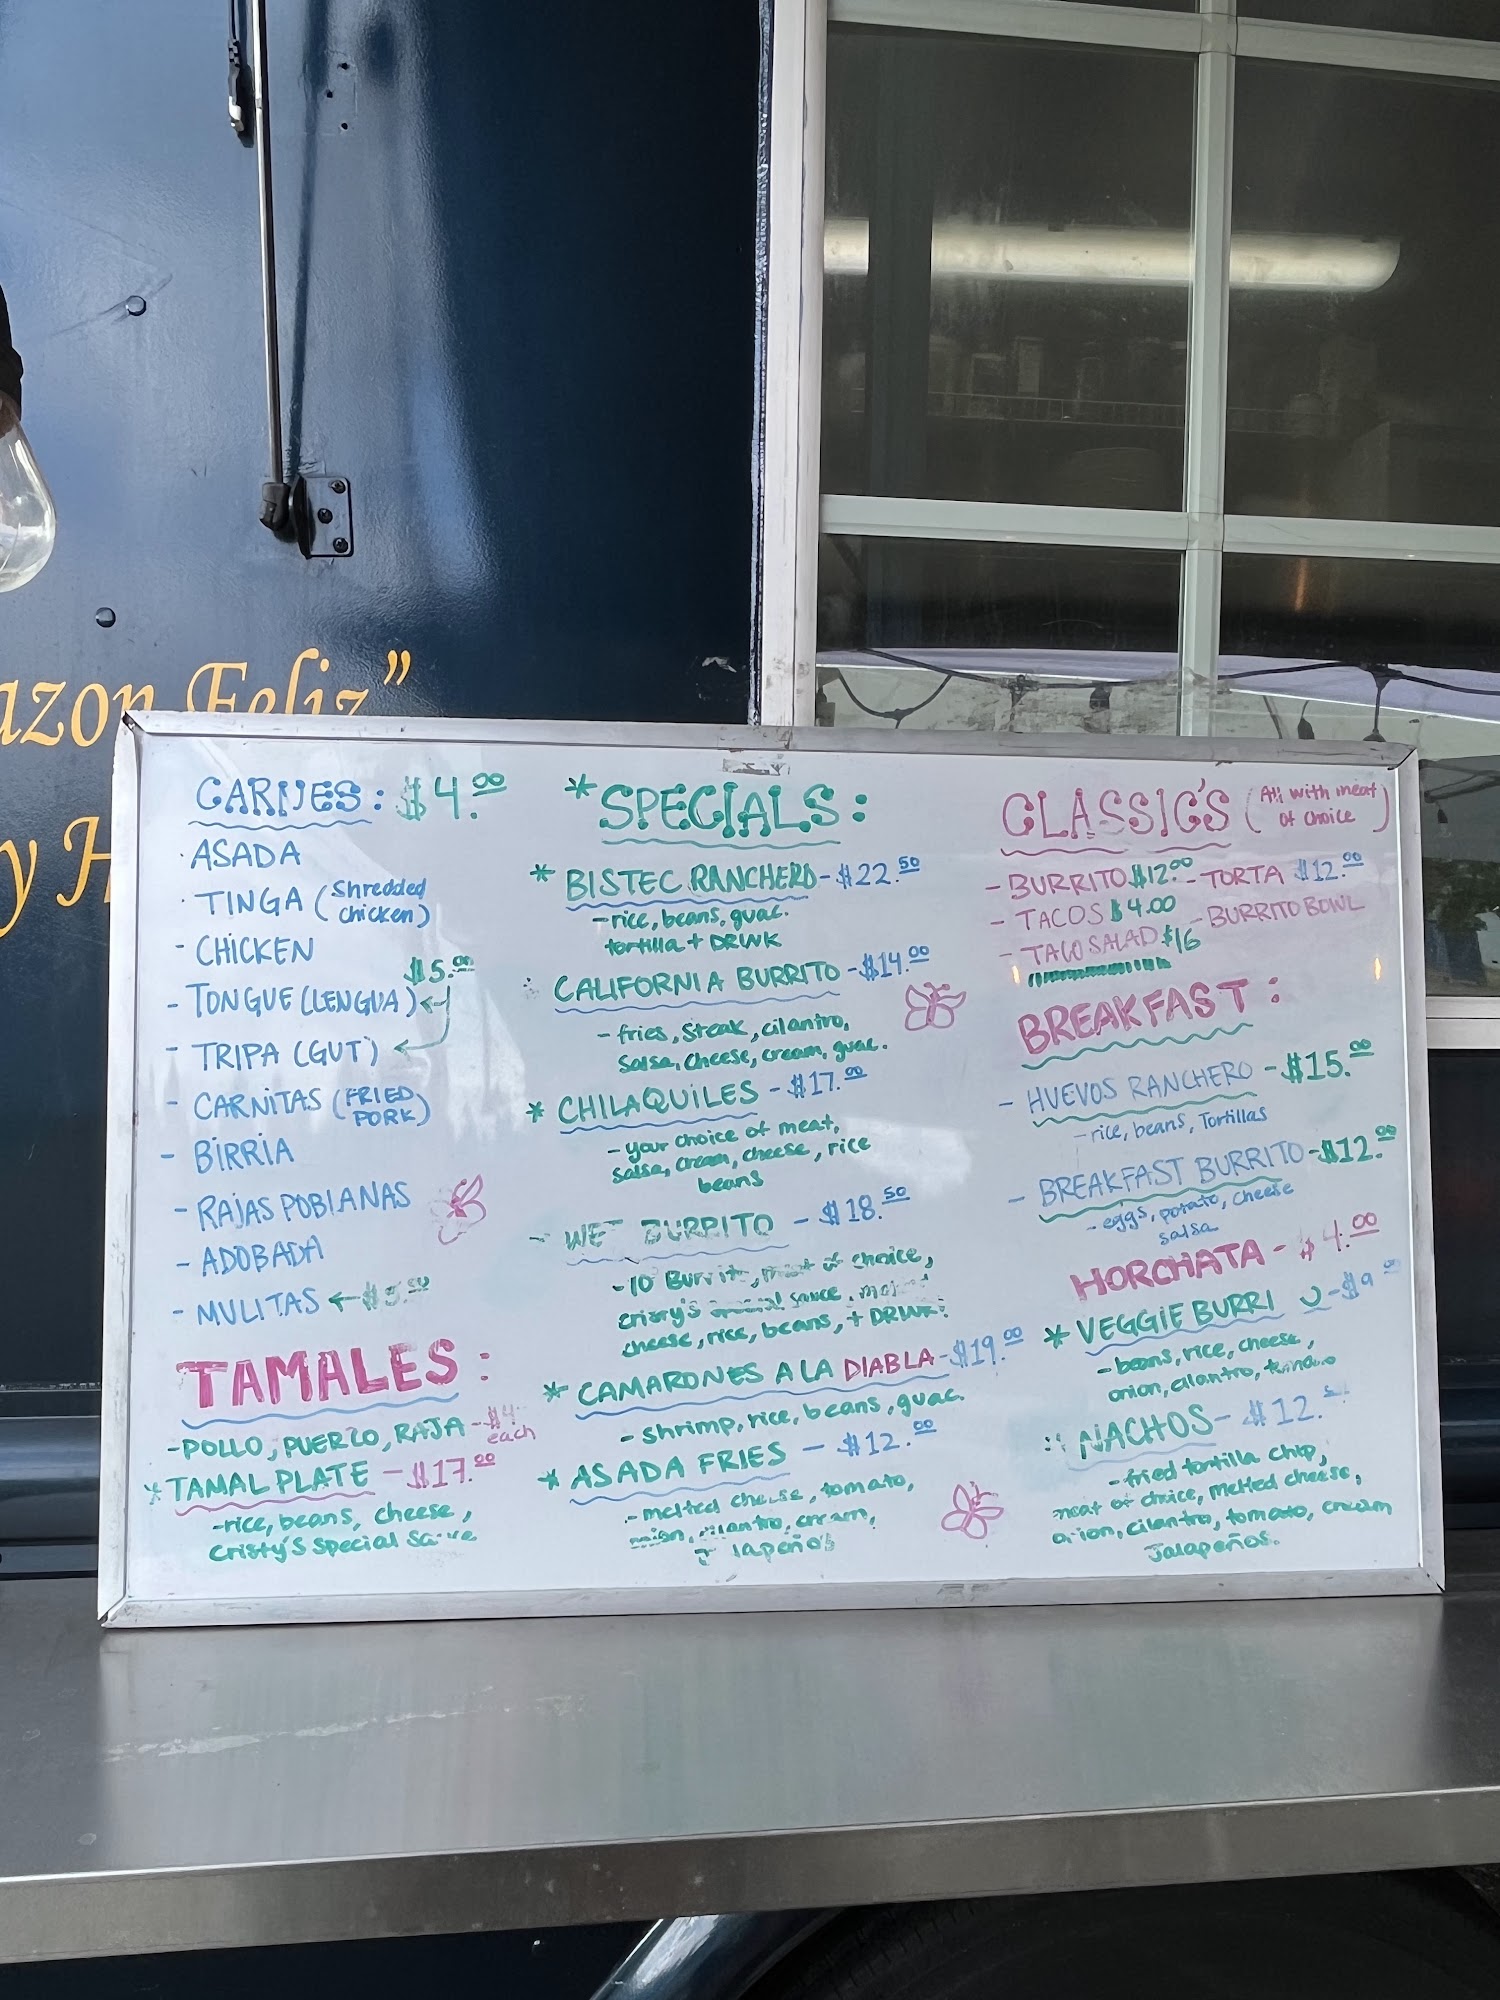 azon Feliz"
y H
CARNES: $4.00
·ASADA
·TINGA (Shredded
chicken)
-CHICKEN
$5.00
-TONGUE (LENGUA)
-TRIPA (GUT)
-CARNITAS (FRIED
PORK)
-BIRRIA
-RAJAS POBIANAS
-ADOBADA
-MULITAS
TAMALES:
-POLLO, PUERCO, RAJA -$4
each
*TAMAL PLATE -$17.00
-rice, beans, cheese,
cristy's special sauce
*SPECIALS:
*BISTEC RANCHERO-$22.50
-rice, beans, guac.
tortilla + DRINK
CALIFORNIA BURRITO-$14.00
-fries, Steak, cilantro,
salsa, cheese, cream, guac.
*CHILAQUILES -$17.00
-your choice of meat,
salsa, cream, cheese, rice
beans
-WET BURRITO -$18.50
-10 Burrito, meat of choice,
cristy's special sauce,
cheese, rice, beans, + DRINK
*CAMARONES A LA DIABLA-$19.00
-shrimp, rice, beans, guac.
*ASADA FRIES -$12.00
-melted cheese, tomato,
onion, cilantro, cream,
Japeños
CLASSIC'S (All with meat
of choice)
-BURRITO $12.00 -TORTA $12.00
-TACOS $4.00 -BURRITO BOWL
-TACO SALAD $16
BREAKFAST:
-HUEVOS RANCHERO -$15.00
-rice, beans, Tortillas
-BREAKFAST BURRITO-$12.00
-eggs, potato, cheese
salsa
HORCHATA-$4.00
*VEGGIE BURRI -$9
-beans, rice, cheese,
onion, cilantro,
NACHOS-$12.
-fried tortilla chip,
meat of choice, melted cheese,
onion, cilantro, tomato, cream
Jalapeños.